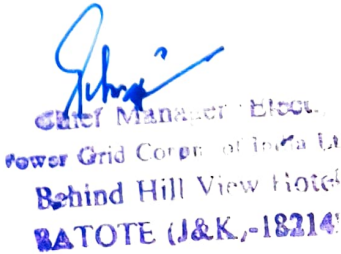 Chief Manager Elect.
Power Grid Corpn of India Lt
Behind Hill View Hotel
BATOTE (J&K,-18214